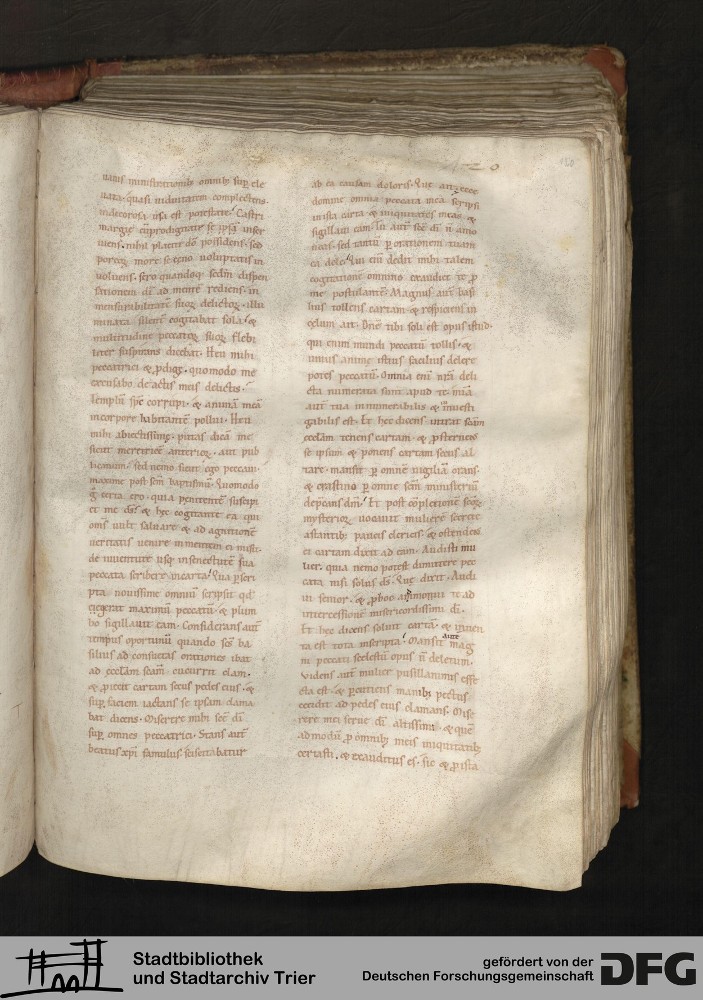 uatis ministrationib; omnib; sup ele
uata. quasi uiduitatem complectens.
indecorosa uisa est potestate. Castri
margie cūprodigiatur se ipsā inser
uiens. nihil placitū dō possidens. sed
porcoꝝ more se ceno uoluptatis in
uoluens. sero quandoq; sedm̄ dispen
sationem dī ad mente rediens. in
mensurabilitatē suoꝝ delictoꝝ. illu
minata silenter cogitabat sola. &
multitudine peccatoꝝ suoꝝ flebi
liter suspirans dicebat. Heu mihi
peccatrici & pdigę. quomodo me
excusabo de actis meis delictis.
Templū spc̄ corrupi. & animā meā
incorpore habitantē pollui. Heu
mihi abiectissimę. quitas dicā me
sicut meretrice anteriorē. aut pub
licanum. sed nemo sicut ego peccaui.
maxime post sc̄m baptismū. Quomodo
ḡ certa ero. quia penitentē suscepit
et me ds̄. & hęc cogitante ea qui
om̄s uult saluare & ad agnitionē
ueritatis uenire in mentem ei misit.
de iuuentute usq; insenectutē sua
peccata scribere incarta. Quā pscri
pta nouissime omniū scripsit qd̄
egerat maximū peccatū. & plum
bo sigillauit eam. Considerans aut̄
tempus oportunū quando sc̄s ba
silius ad consuetas orationes ibat
ad ecclam̄ sc̄am. cucurrit clam.
& piecit cartam secus pedes eius. &
sup faciem iactans se ipsam clama
bat dicens. Miserere mihi sc̄e dī
sup omnes peccatrici. Stans aut̄
beatus xpī famulus sciscitabatur
120
ab ea causam doloris. Quę ait. ecce
domine omnia peccata mea scripsi
inista carta & iniquitates meas. &
sigillaui eam. Tu aut̄ sc̄e dī n̄ amo
neas. sed tantū p orationem tuam
ea dele. Qui enī dedit mihi talem
cogitationē omnino exaudiet te p
me postulantē. Magnus aut̄ basi
lius tollens cartam & respiciens in
cęlum ait. Dn̄e tibi soli est opus istud.
qui enim mundi peccatū tollis. &
unius animę istius facilius delere
potes peccatū. Omnia enī nr̄a deli
cta numerata sunt apud te. mi̅a
aut̄ tua innumerabilis & inuesti
gabilis est. Et hęc dicens intrat sc̄am
ecclam̄ tenens cartam. & psternens
se ipsum & ponens cartam secus al
tare. mansit p omnē uigiliā orans.
& crastino p omne sc̄m ministeriū
depcans dm̄. Et post cōpletionē sc̄oꝝ
mysterioꝝ uocauit mulierē secrete
astantib; paucis clericis. & ostendens
ei cartam dixit ad eam. Audisti mu
lier. quia nemo potest dimittere pec
cata nisi solus ds̄. Quę dixit. Audi
ui senior. & phoc ammonui te ad
intercessionē misericordissimi dī.
Et hęc dicens soluit cartā. & inuen
ta est tota inscripta. Mansit aut̄ mag
ni peccati scelestū opus n̄ deletum.
Videns aut̄ mulier pusillanimis effe
cta est. & pcutiens manib; pectus
cecidit ad pedes eius clamans. Mise
rere mei serue dī altissimi. & quē
ad modū p omnib; meis iniquitatib;
certasti. & exauditus es. sic & p ista
Stadtbibliothek
und Stadtarchiv Trier
gefördert von der
Deutschen Forschungsgemeinschaft
DFG